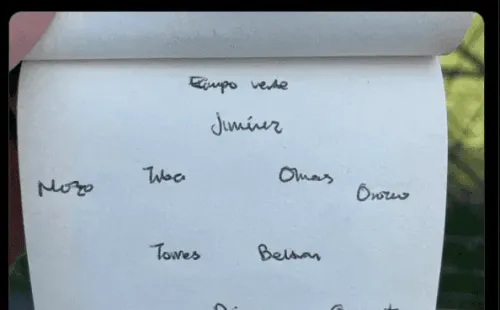 Equipo verde
Jiménez
Mozo Tapia Omar Orozco
Torres Beltran